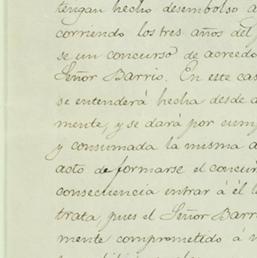 tengan hecho desembolso a
corriendo los tres años del
se un concurso de acreedo
Señor Barrio. En este cas
se entenderá hecha desde a
mente, y se dará por cump
y consumada la misma a
acto de formarse el concur
consecuencia entrar á él l
trata, pues el Señor Barr
mente comprometido á v